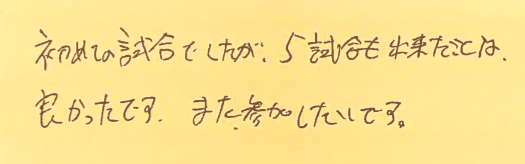 初めての試合でしたが、5試合も出来たことは、
良かったです。また参加したいです。